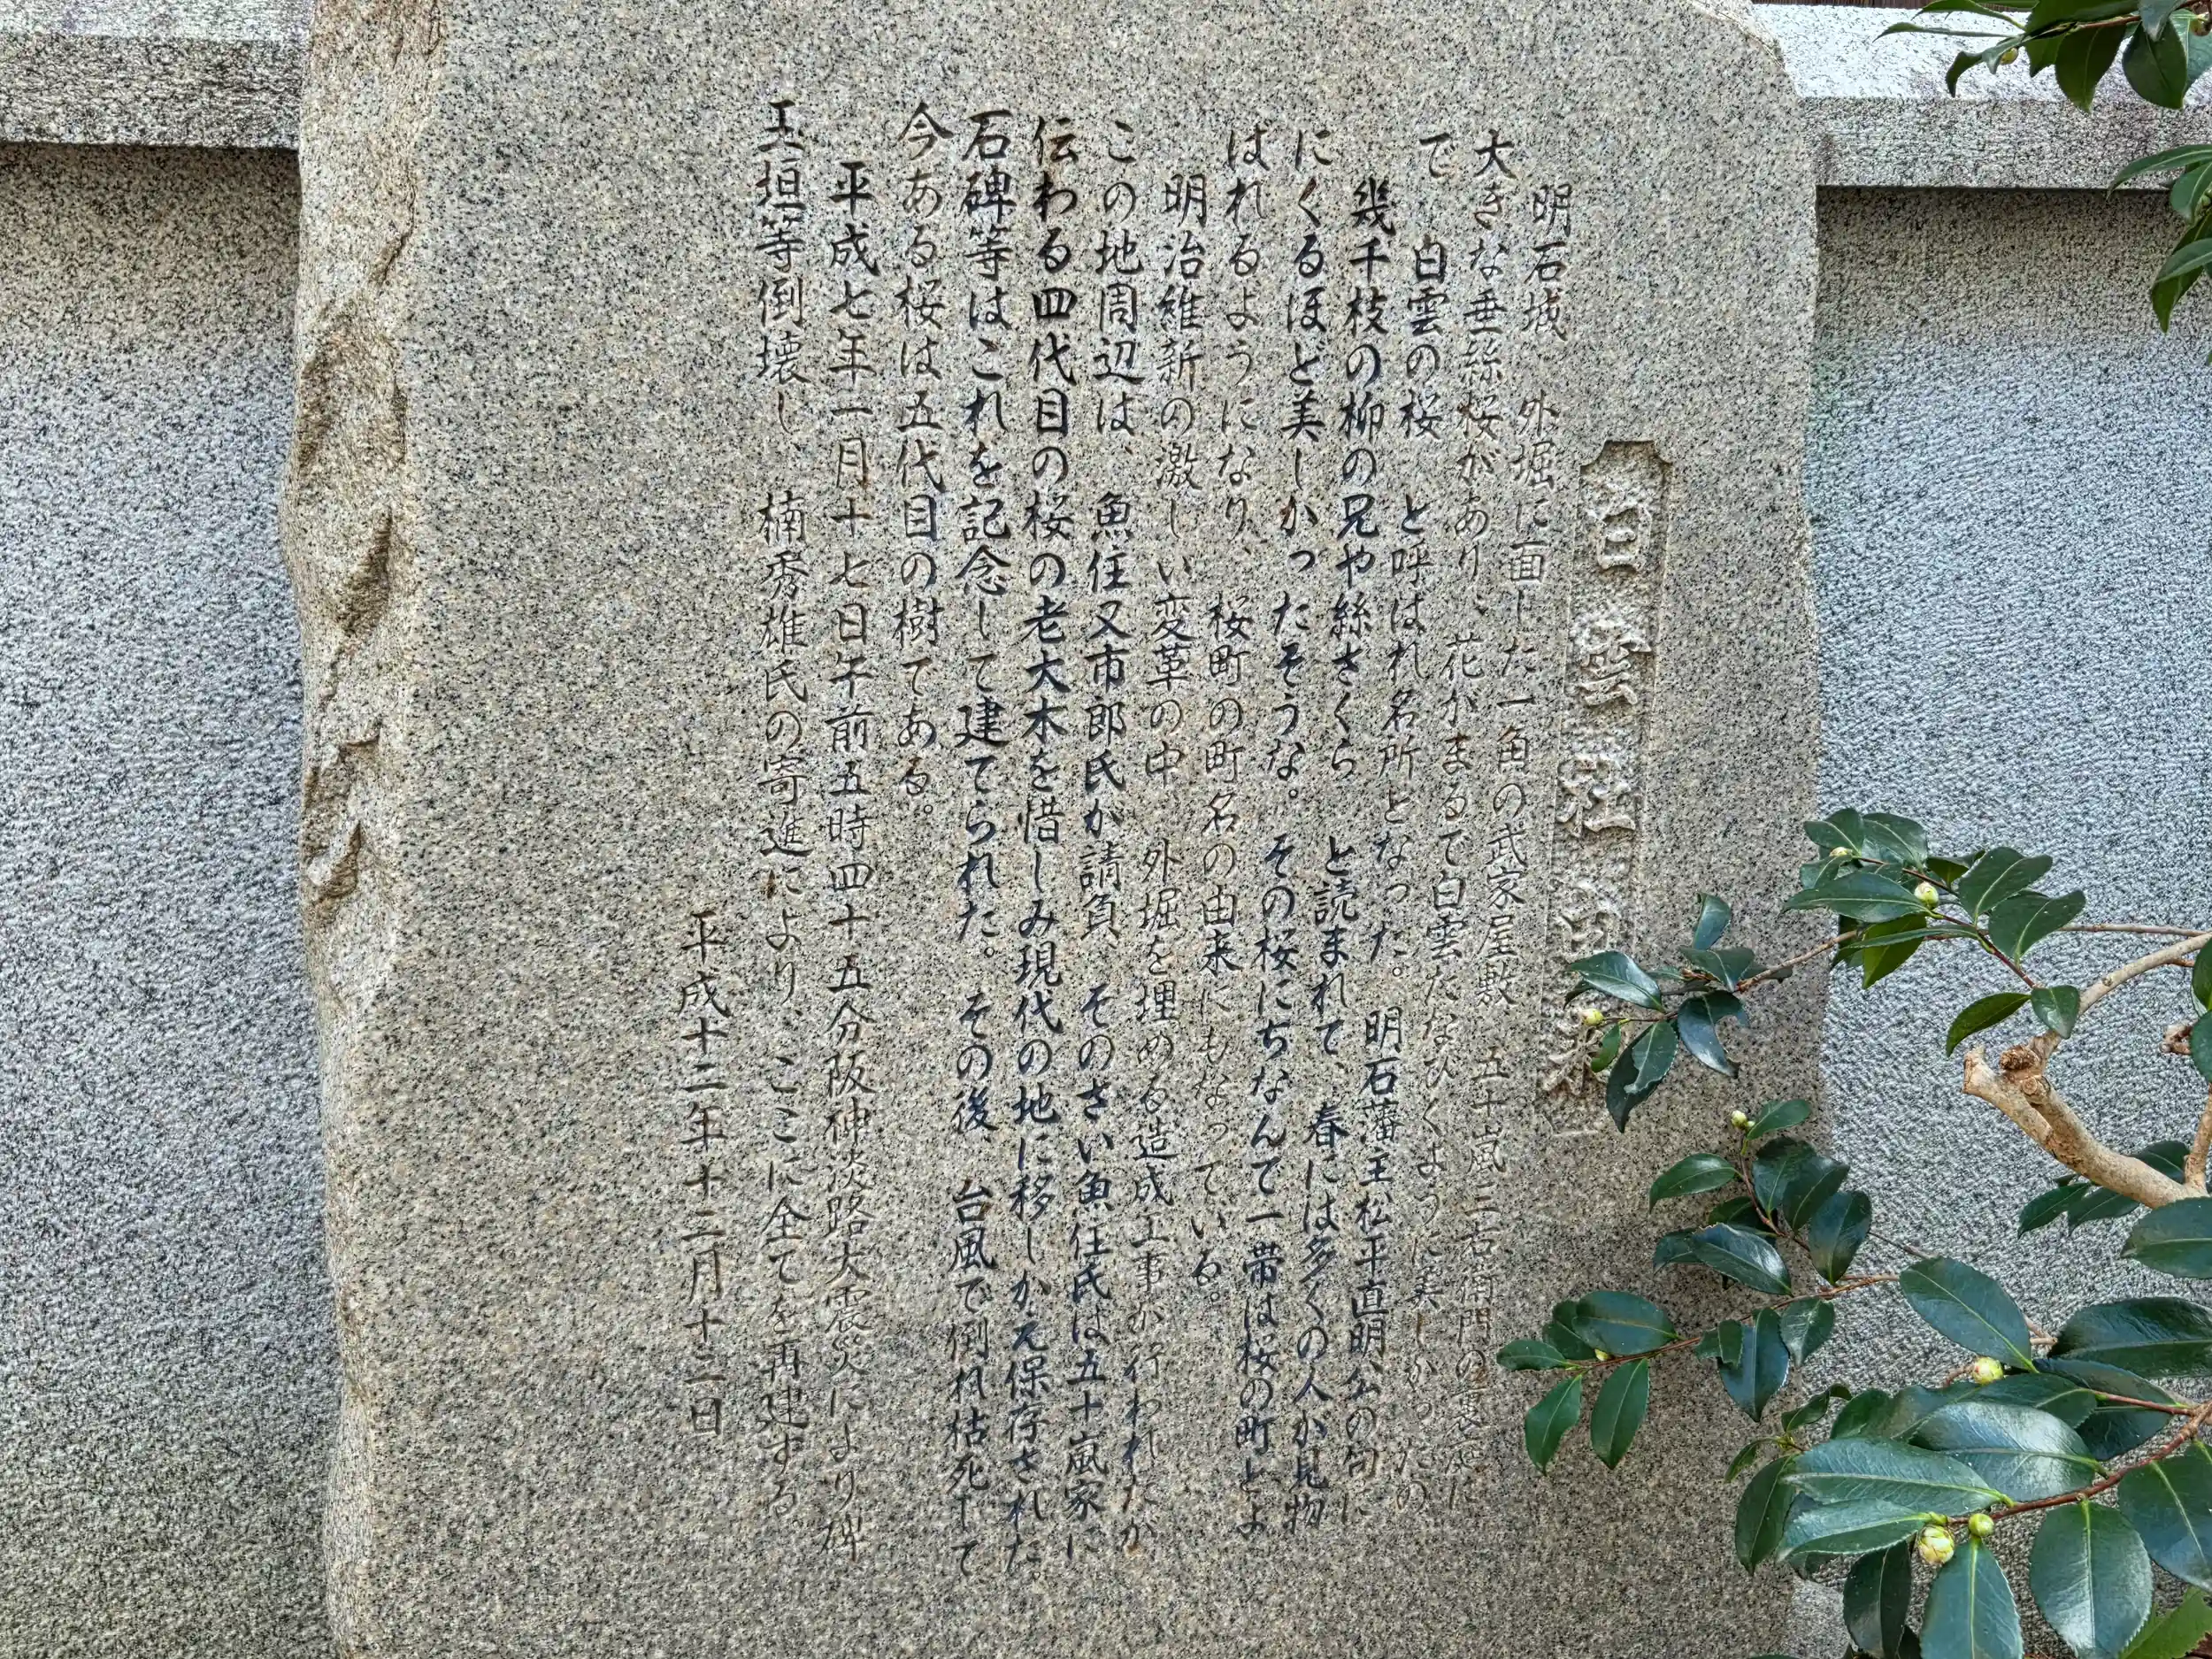 白雲桜由来
明石城、外堀に面した一角の武家屋敷、五十嵐三右衛門の裏庭に
大きな垂絲桜があり、花がまるで白雲たなびくように美しかったの
で、白雲の桜、と呼ばれ名所となった。明石藩主松平直明公の句に
幾千枝の柳の兄や絲さくら、と読まれて、春には多くの人が見物
にくるほど美しかったそうな。その桜にちなんで一帯は桜の町とよ
ばれるようになり、桜町の町名の由来にもなっている。
明治維新の激しい変革の中、外堀を埋める造成工事が行われたが
この地周辺は、魚住又市郎氏が請負、そのさい魚住氏は五十嵐家に
伝わる四代目の桜の老大木を惜しみ現代の地に移しかえ保存された。
石碑等はこれを記念して建てられた。その後、台風で倒れ枯死して
今ある桜は五代目の樹てある。
平成七年一月十七日午前五時四十五分阪神淡路大震災により碑
玉垣等倒壊し、楠秀雄氏の寄進により、ここに全てを再建する
平成十二年十二月十二日